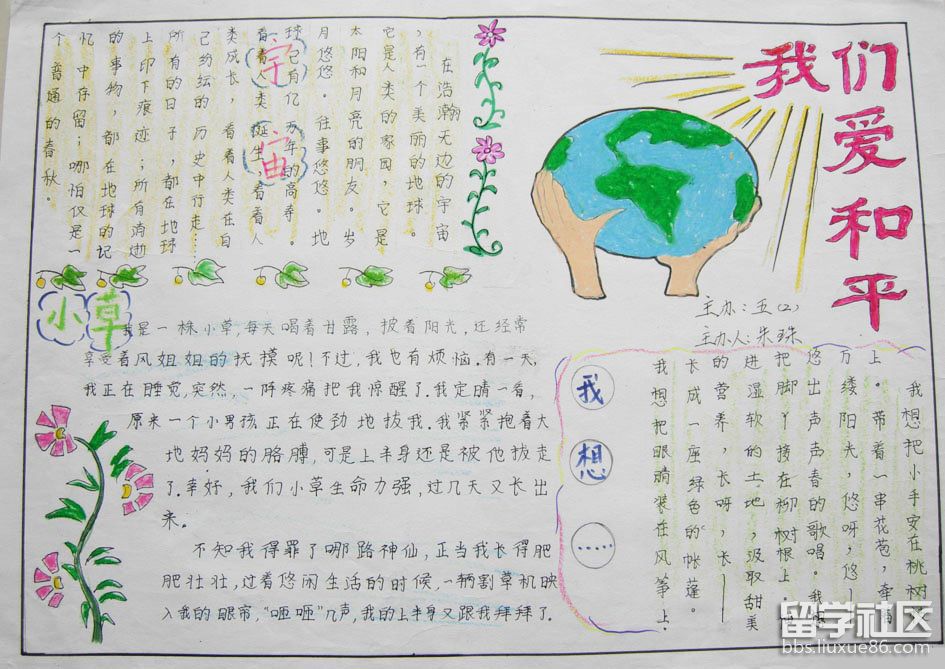 我们
爱
和
平
主办:五(2)
主办人:朱珠
宇
宙
在浩瀚无边的宇宙
,有一个美丽的地球。
它是人类的家园,它是
太阳和月亮的朋友。岁
月悠悠。往事悠悠。地
球已有亿万年的高寿。
看着人类诞生,看着人
类成长,看着人类在自
己纷纭的历史中行走…
所有的日子,都在地球
上印下痕迹;所有消逝
的事物,都在地球的记
忆中存留;哪怕仅是一
个普通的春秋。
小草
我是一株小草,每天喝着甘露,披着阳光,还经常
享受着风姐姐的抚摸呢!不过,我也有烦恼.有一天,
我正在睡觉,突然,一阵疼痛把我惊醒了.我定睛一看,
原来一个小男孩正在使劲地拔我.我紧紧抱着大
地妈妈的胳膊,可是上半身还是被他拔走
了.幸好,我们小草生命力强,过几天又长出
来.
不知我得罪了哪路神仙,正当我长得肥
肥壮壮,过着悠闲生活的时候,一辆割草机映
入我的眼帘,"咂咂"几声,我的上半身又跟我拜拜了.
我
想
……
我想把小手安在桃树
上。带着一串花苞,牵
万缕阳光,悠呀,悠—
悠出声声春的歌唱。我
把脚丫接在柳树根上
进湿软的土地,汲取甜美
的营养,长呀,长——
长成一座绿色的帐蓬。
我想把眼睛装在风筝上.
留学社区
bbs.liuxue86.com